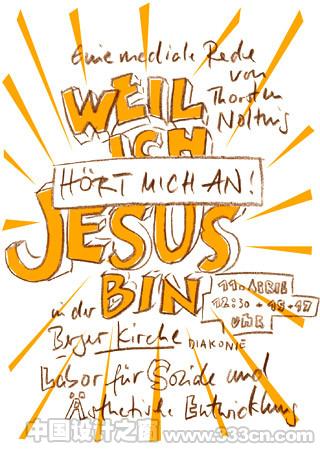 Eine mediale Rede
von
Thorsten
Nolting
WEIL
ICH
HÖRT MICH AN!
JESUS
BIN
11. APRIL
12:30 + 15 + 17
UHR
in der
Berger Kirche DIAKONIE
Labor für Soziale und
Ästhetische Entwicklung
中国设计之窗 www.333cn.com